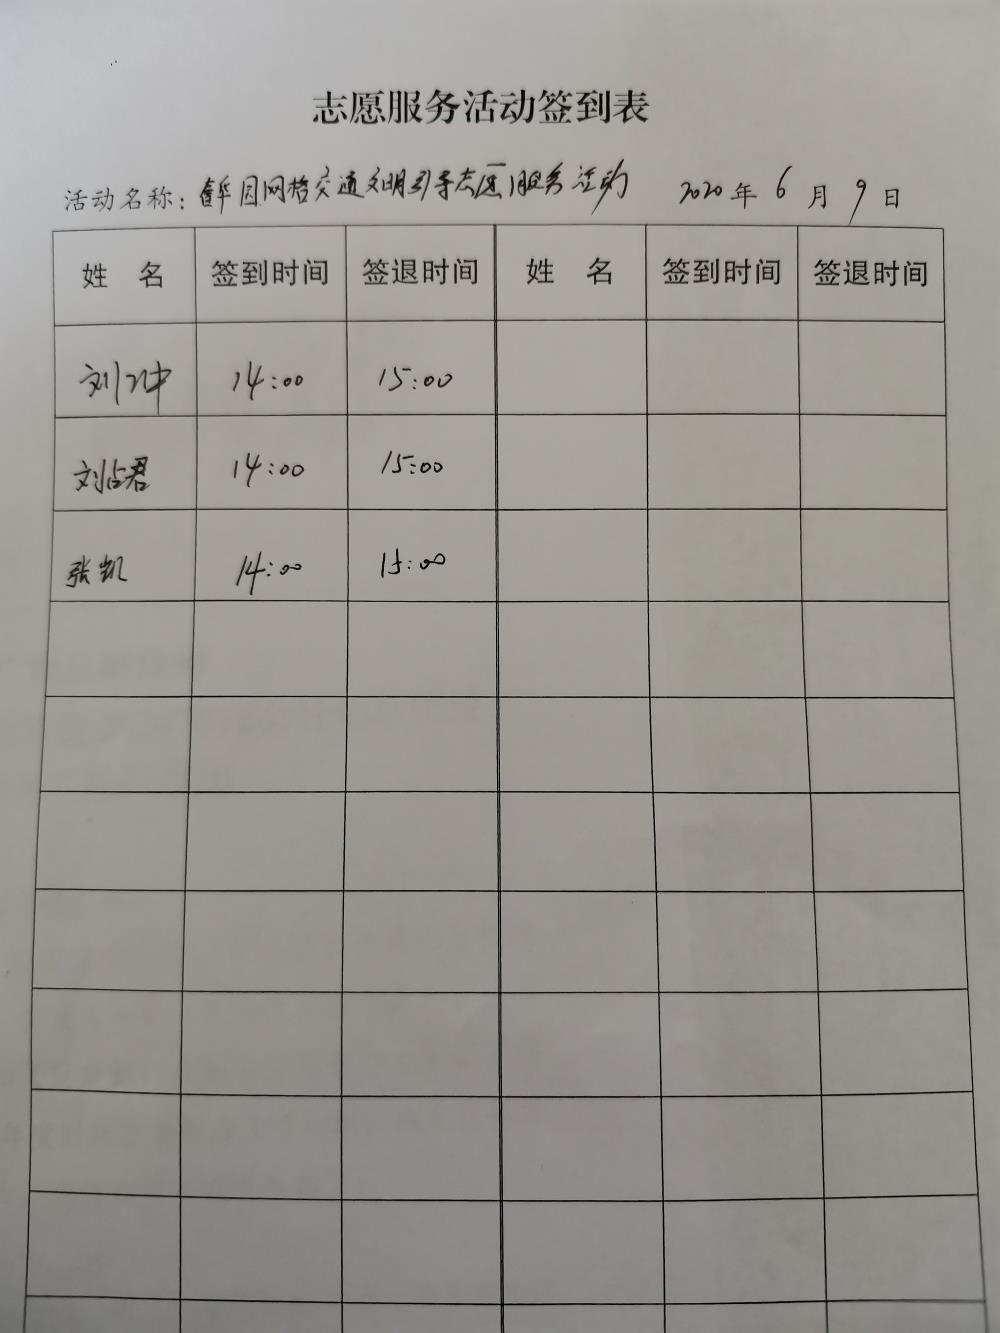 志愿服务活动签到表
活动名称：睿华园网格交通文明引导志愿服务活动 2020年6月9日
姓 名 签到时间 签退时间 姓 名 签到时间 签退时间
刘冲 14:00 15:00
刘占君 14:00 15:00
张凯 14:00 15:00